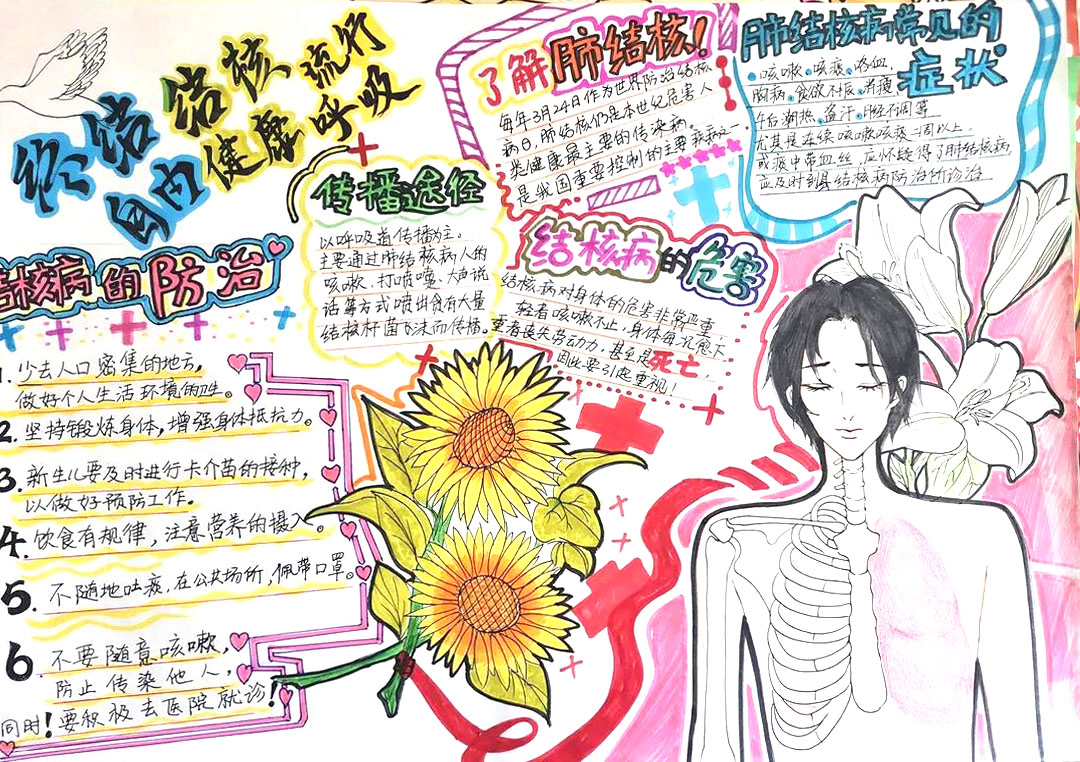 终结结核流行
自由健康呼吸
了解肺结核!
每年3月24日作为世界防治结核
病日，肺结核们是本世纪危害人
类健康最主要的传染病。
是我国重要控制的主要疾病之一
肺结核病常见的
症状
咳嗽、咳痰、咯血、
胸痛、食欲不振、消瘦
午后潮热、盗汗、月经不调等
尤其是连续咳嗽咳痰二周以上
或痰中带血丝，应怀疑得了肺结核病
应及时到县结核病防治所诊治
传播途径
以呼吸道传播为主。
主要通过肺结核病人的
咳嗽、打喷嚏、大声说
话等方式喷出含有大量
结核杆菌飞沫而传播。
结核病的危害
结核病对身体的危害非常严重，
轻者咳嗽不止，身体每况愈下
重者丧失劳动力，甚至是死亡，
因此要引起重视！
结核病的防治
1. 少去人口密集的地方，
做好个人生活环境的卫生。
2. 坚持锻炼身体，增强身体抵抗力。
3. 新生儿要及时进行卡介苗的接种，
以做好预防工作。
4. 饮食有规律，注意营养的摄入。
5. 不随地吐痰，在公共场所，佩带口罩。
6. 不要随意咳嗽，
防止传染他人，
同时！要积极去医院就诊！